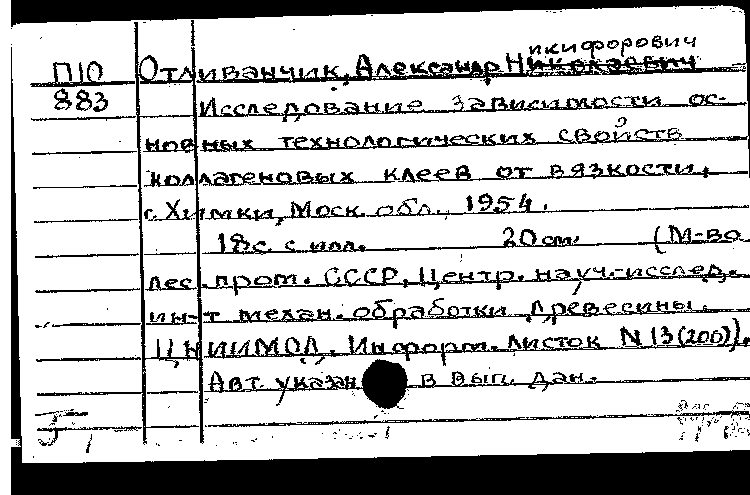 икифорович
П10 Отливанчик, Александр Николаевич
883 Исследование зависимости ос-
новных технологических свойств
коллагеновых клеев от вязкости.
г. Химки, Моск. обл., 1954.
18с. с илл. 20см. (М-во
лес. пром. СССР. Центр. науч.-исслед.
ин-т механ. обработки древесины.
ЦНИИМОД. Информ. листок N 13(200)).
Авт. указан в вып. дан.